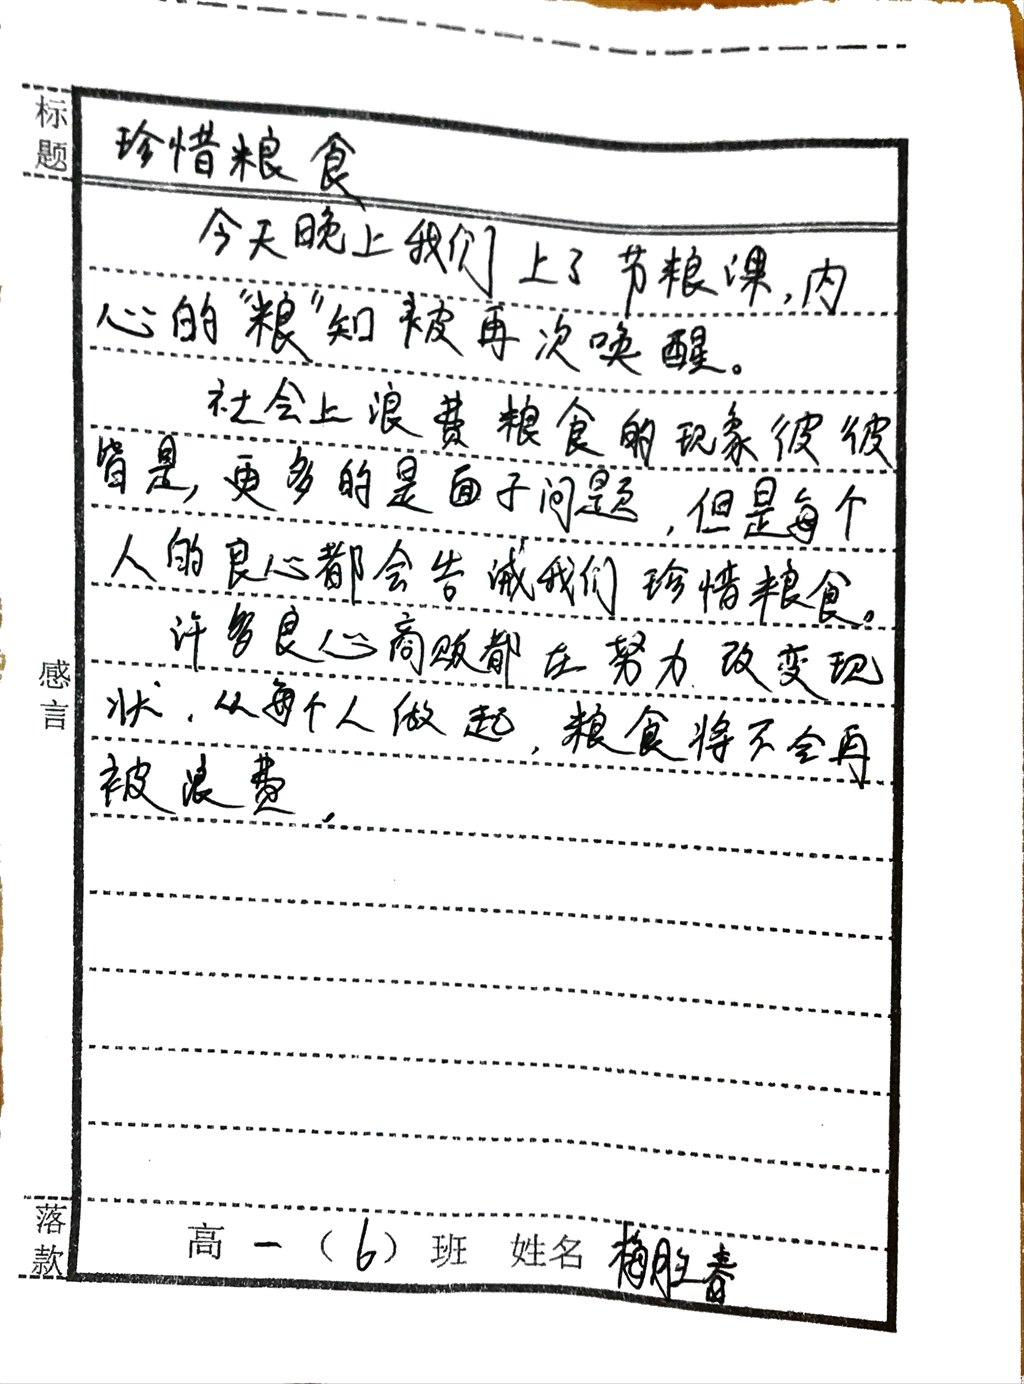 标题
珍惜粮食
今天晚上我们上了节粮课,内
心的"粮"知被再次唤醒。
社会上浪费粮食的现象彼彼
皆是,更多的是面子问题,但是每个
人的良心都会告诫我们珍惜粮食。
许多良心商贩都在努力改变现
状,从每个人做起,粮食将不会再
被浪费.
感言
落款
高一(6)班 姓名 梅胜春